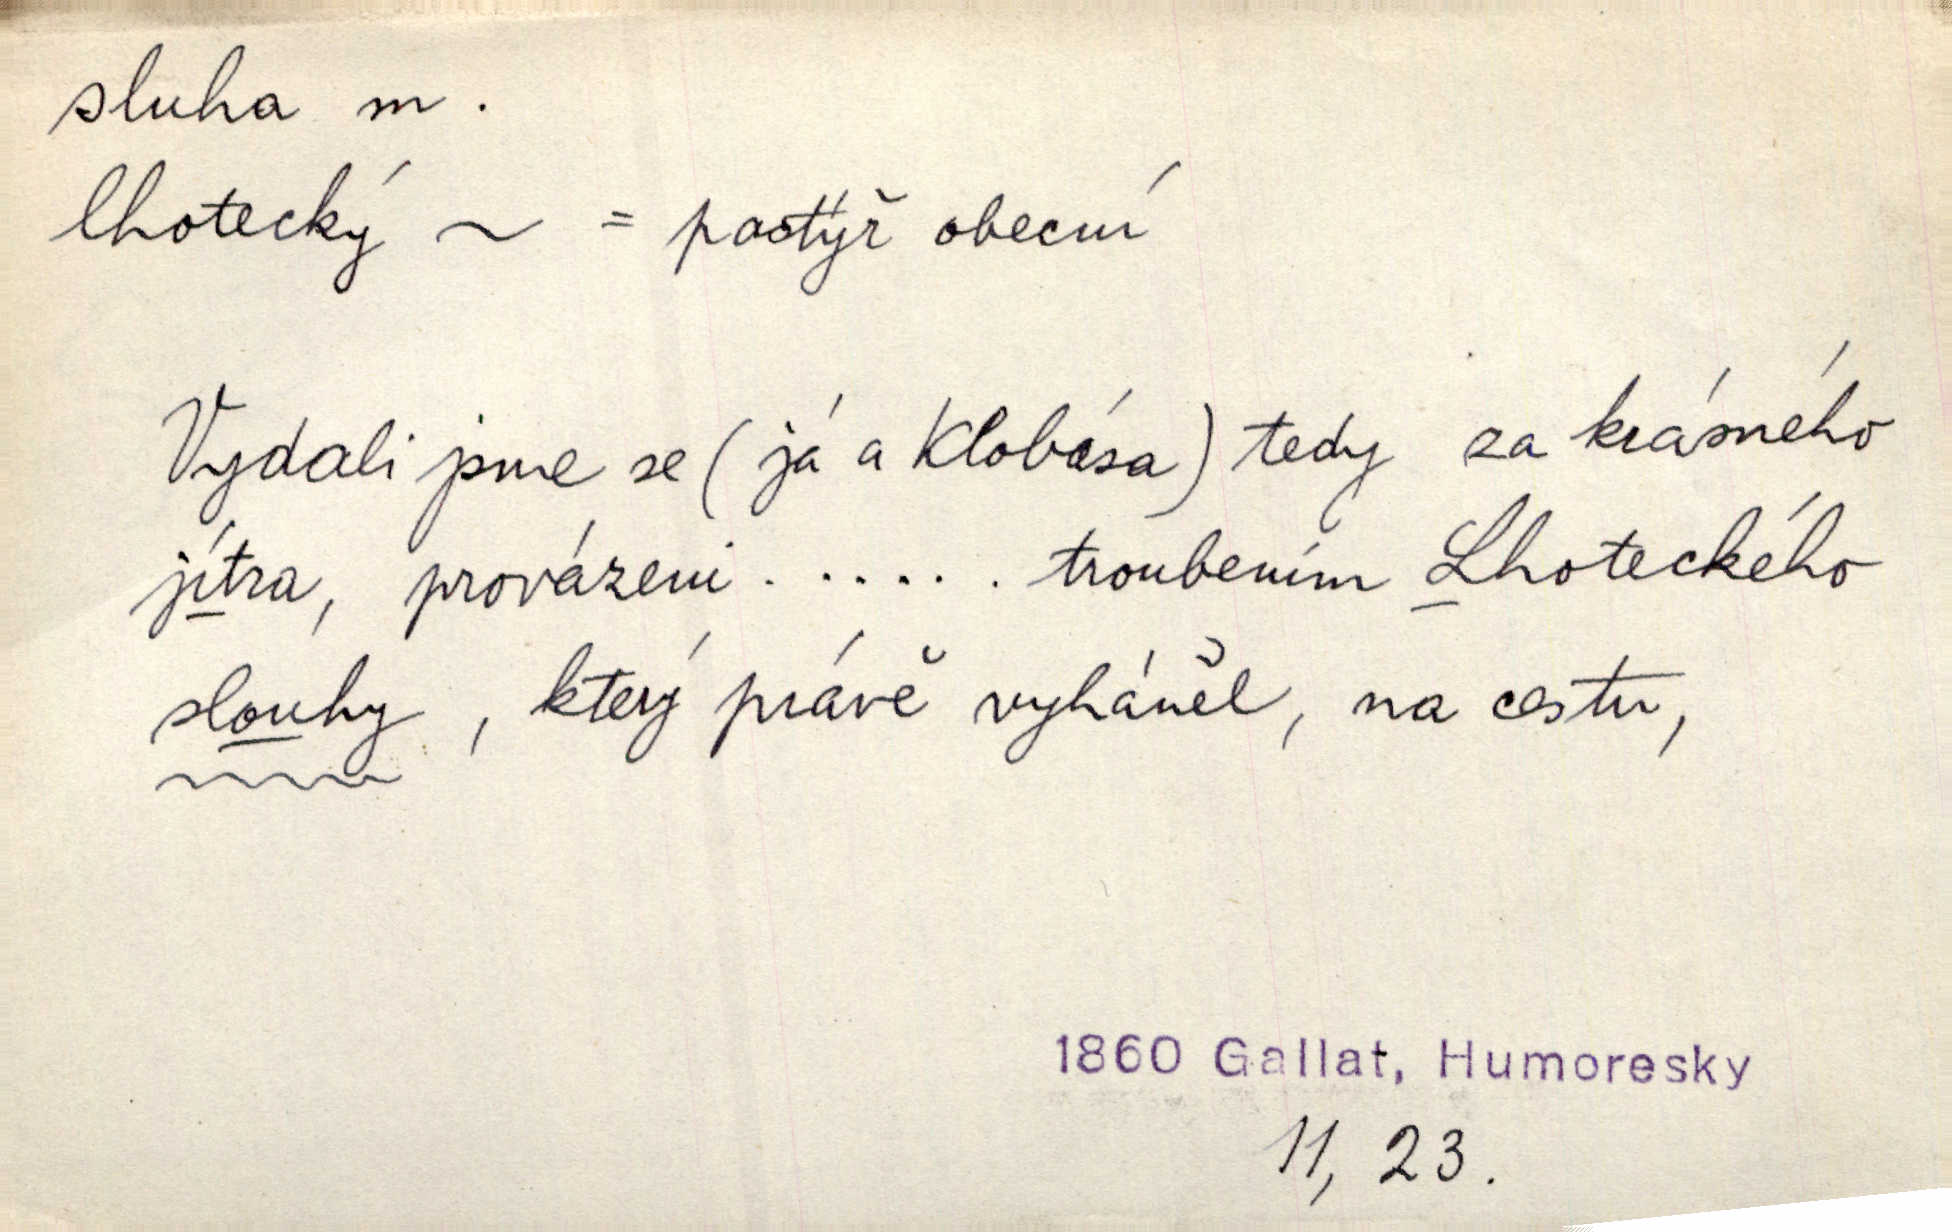 sluha m.
lhotecký ~ = pastýř obecní
Vydali jsme se (já a Klobása) tedy za krásného
jítra, provázeni ...... troubením Lhoteckého
slouhy, který právě vyháněl, na cestu,
1860 Gallat, Humoresky
11, 23.